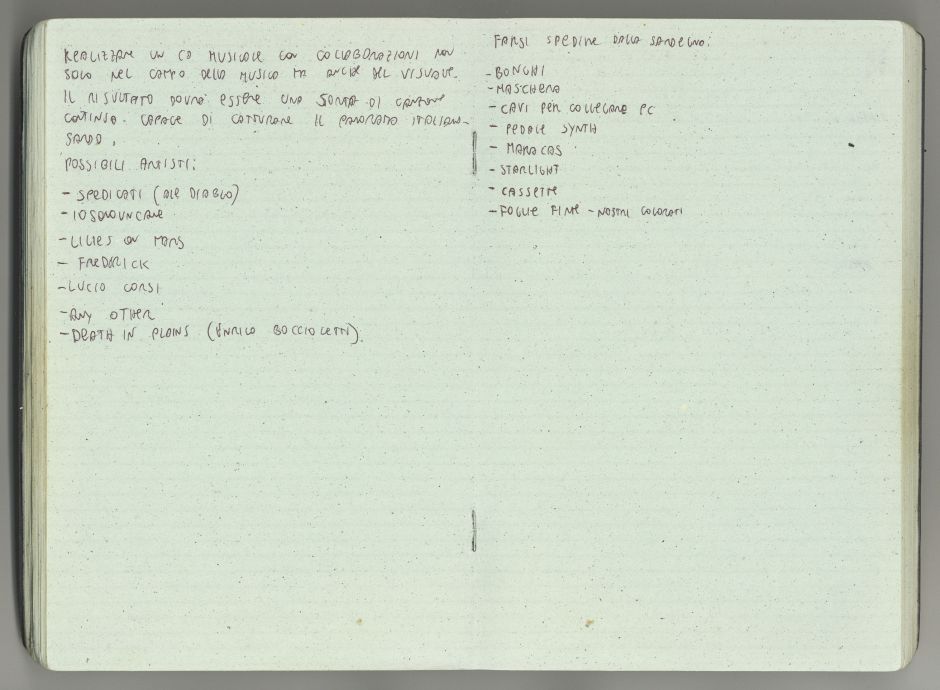 REALIZZARE UN CD MUSICALE CON COLLABORAZIONI NON
SOLO NEL CAMPO DELLA MUSICA MA ANCHE DEL VISUALE.
IL RISULTATO DOVRÀ ESSERE UNA SORTA DI CANZONE
CONTINUA. CAPACE DI CATTURARE IL PANORAMA ITALIANO-
SARDO.
POSSIBILI ARTISTI:
- SPEDICATI (ALE DIABLO)
- IOSONOUNCANE
- LILIES ON MARS
- FREDERICK
- LUCIO CORSI
- ANY OTHER
- DEATH IN PLAINS (ENRICO BOCCIOLETTI).
FARSI SPEDIRE DALLA SARDEGNA:
- BONGHI
- MASCHERA
- CAVI PER COLLEGARE PC
- PEDALE SYNTH
- MARACAS
- STARLIGHT
- CASSETTE
- FOGLIE FINTE - NASTRI COLORATI